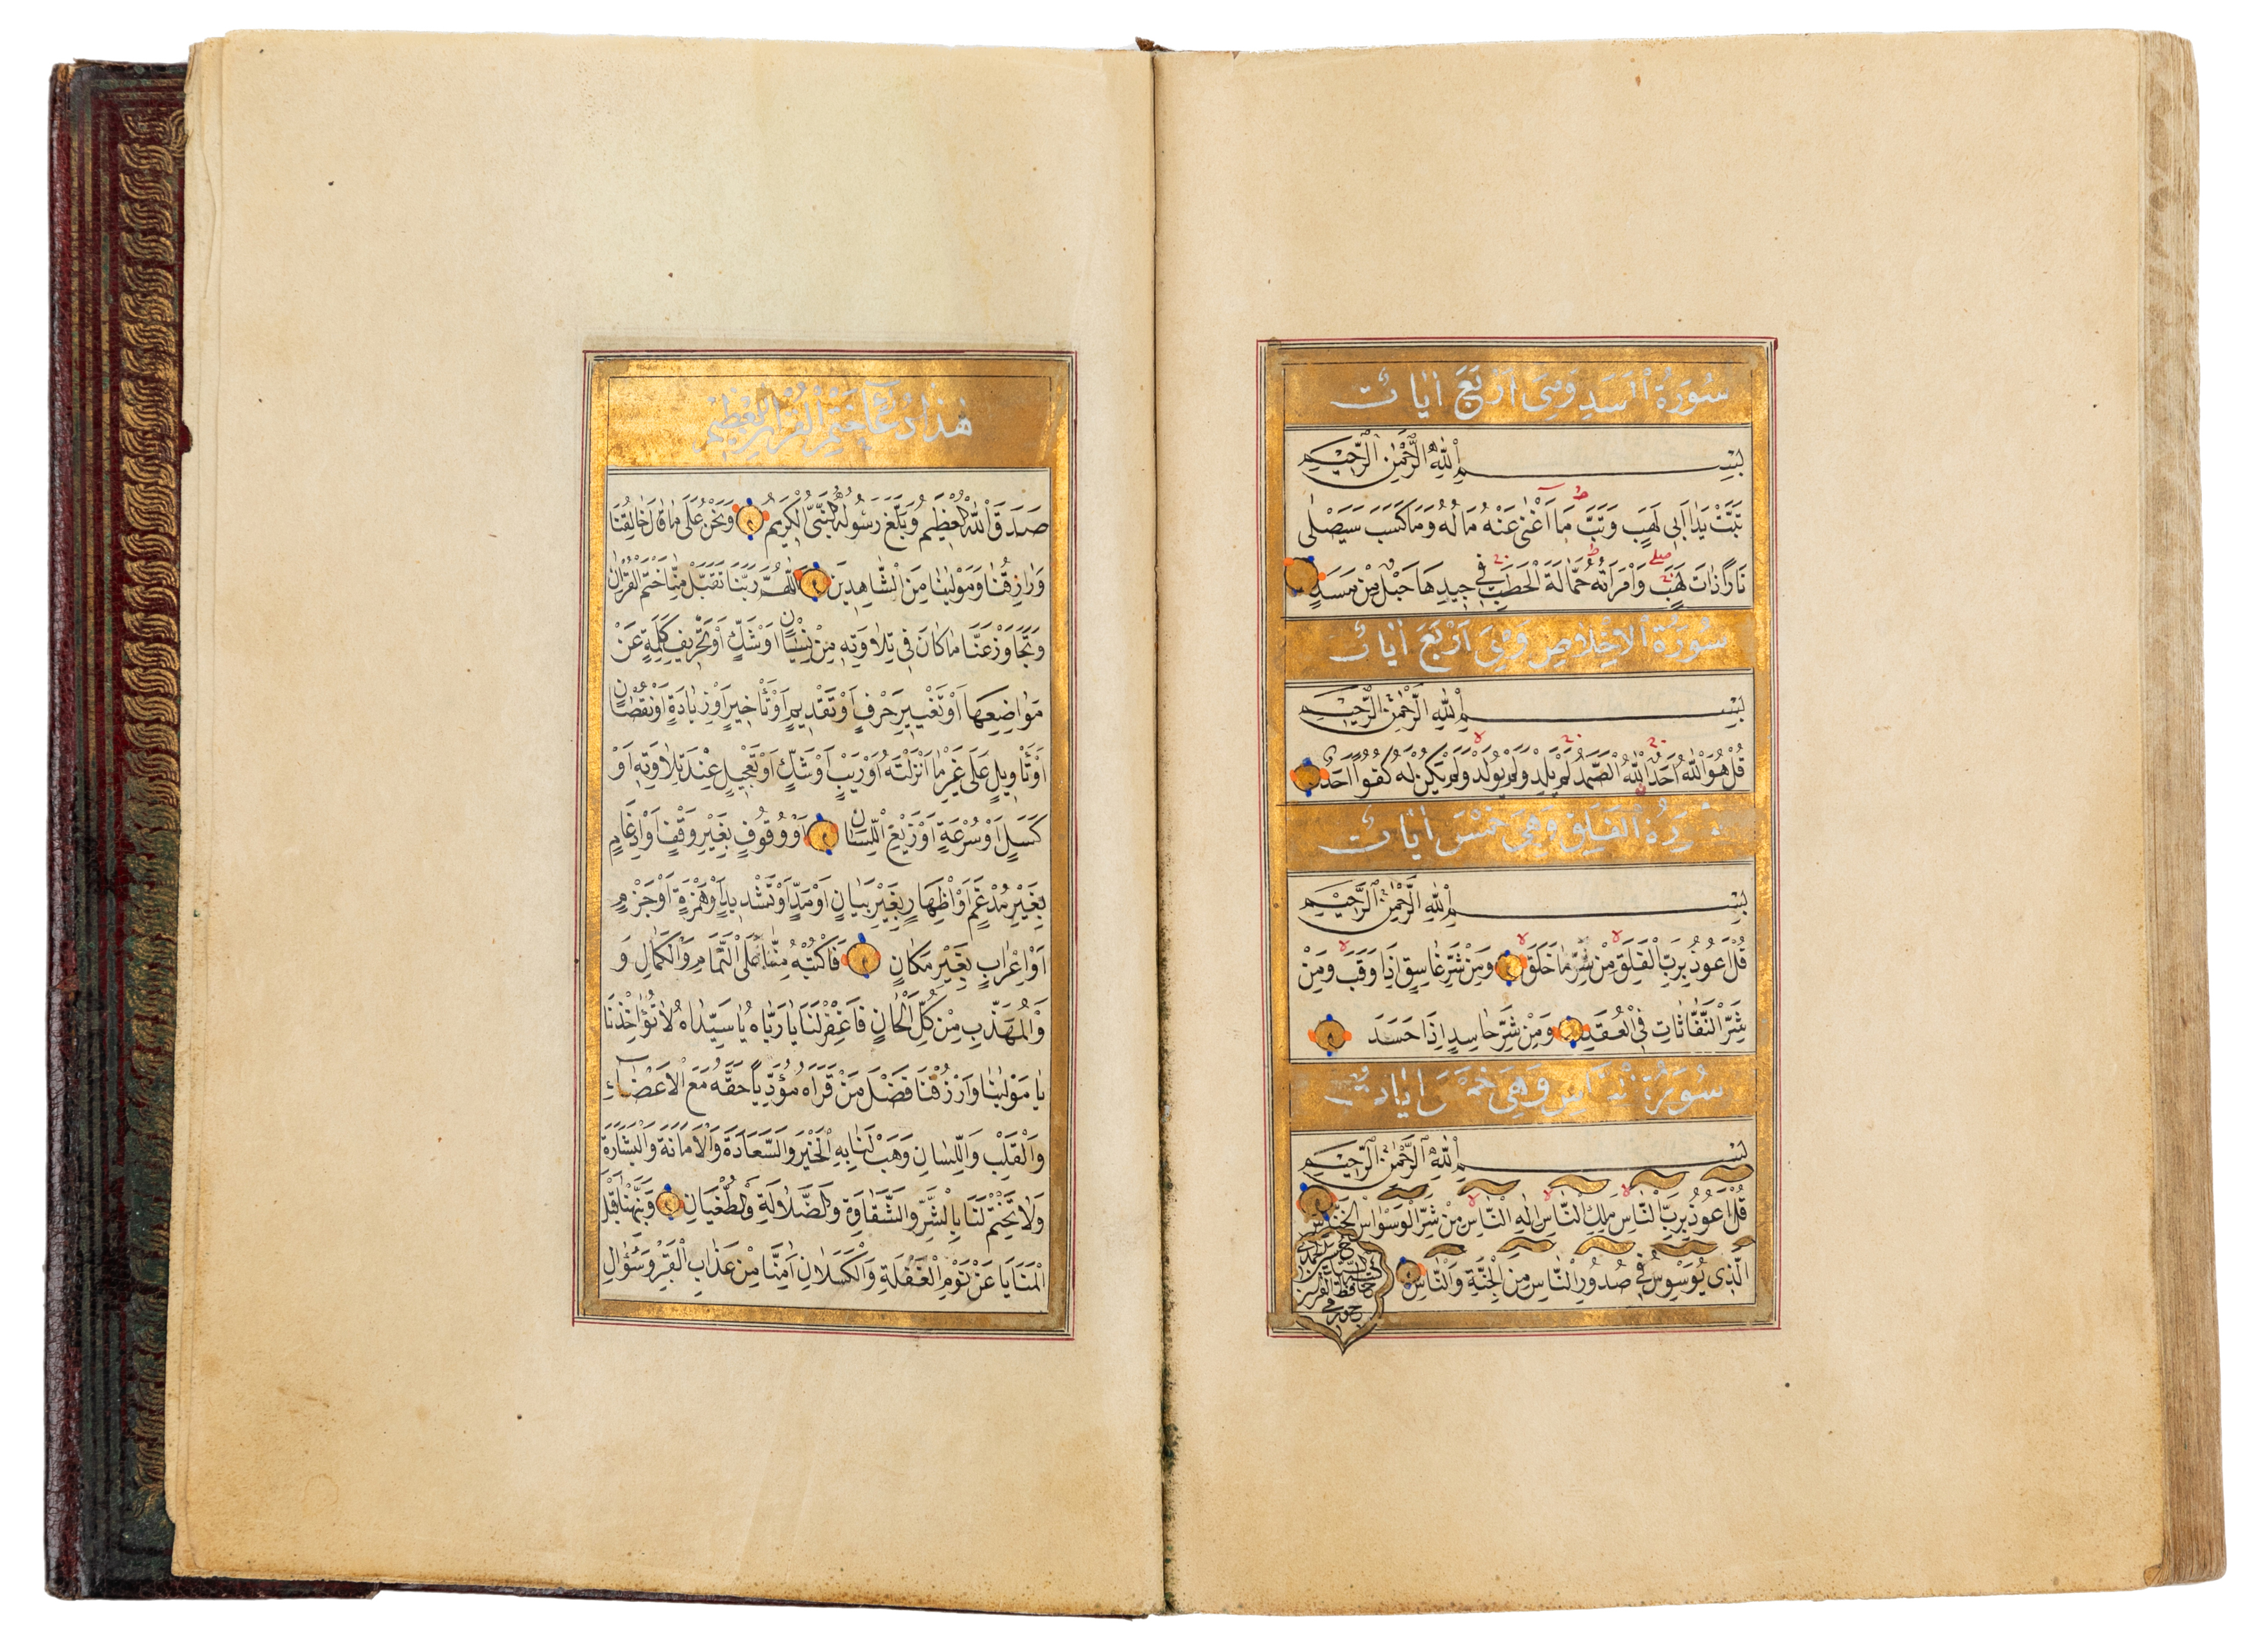 سُورَةُ الْمَسَدِ وَهِىَ اَرْبَعَ اٰيَاتْ
بِسْمِ اللّٰهِ الرَّحْمٰنِ الرَّحِيمِ
تَبَّتْ يَدَا اَبِى لَهَبٍ وَتَبَّ مَا اَغْنٰى عَنْهُ مَالُهُ وَمَا كَسَبَ سَيَصْلٰى
نَارًا ذَاتَ لَهَبٍ وَامْرَاَتُهُ حَمَّالَةَ الْحَطَبِ فِى جِيدِهَا حَبْلٌ مِنْ مَسَدٍ
سُورَةُ الْاِخْلَاصِ وَهِىَ اَرْبَعَ اٰيَاتْ
بِسْمِ اللّٰهِ الرَّحْمٰنِ الرَّحِيمِ
قُلْ هُوَ اللّٰهُ اَحَدٌ اَللّٰهُ الصَّمَدُ لَمْ يَلِدْ وَلَمْ يُولَدْ وَلَمْ يَكُنْ لَهُ كُفُوًا اَحَدٌ
الْفَلَقِ وَهِىَ خَمْسَ اٰيَاتْ
بِسْمِ اللّٰهِ الرَّحْمٰنِ الرَّحِيمِ
قُلْ اَعُوذُ بِرَبِّ الْفَلَقِ مِنْ شَرِّ مَا خَلَقَ وَمِنْ شَرِّ غَاسِقٍ اِذَا وَقَبَ وَمِنْ
شَرِّ النَّفَّاثَاتِ فِى الْعُقَدِ وَمِنْ شَرِّ حَاسِدٍ اِذَا حَسَدَ
سُورَةُ النَّاسِ وَهِىَ خَمْسَ اٰيَاتْ
بِسْمِ اللّٰهِ الرَّحْمٰنِ الرَّحِيمِ
قُلْ اَعُوذُ بِرَبِّ النَّاسِ مَلِكِ النَّاسِ اِلٰهِ النَّاسِ مِنْ شَرِّ الْوَسْوَاسِ الْخَنَّاسِ
الَّذِى يُوَسْوِسُ فِى صُدُورِ النَّاسِ مِنَ الْجِنَّةِ وَالنَّاسِ
هٰذَا دُعَآءُ خَتْمِ الْقُرْاٰنِ الْعَظِيمِ
صَدَقَ اللّٰهُ الْعَظِيمُ وَبَلَّغَ رَسُولُهُ النَّبِىُّ الْكَرِيمُ وَنَحْنُ عَلٰى مَا قَالَ خَالِقُنَا
وَرَازِقُنَا وَمَوْلٰينَا مِنَ الشَّاهِدِينَ اَللّٰهُمَّ رَبَّنَا تَقَبَّلْ مِنَّا خَتْمَ الْقُرْاٰنِ
وَتَجَاوَزْ عَنَّا مَا كَانَ فِى تِلَاوَتِهِ مِنْ نِسْيَانٍ اَوْ شَكٍّ اَوْ تَحْرِيفِ كَلِمَةٍ عَنْ
مَوَاضِعِهَا اَوْ تَغْيِيرِ حَرْفٍ اَوْ تَقْدِيمٍ اَوْ تَاْخِيرٍ اَوْ زِيَادَةٍ اَوْ نُقْصَانٍ
اَوْ تَاْوِيلٍ عَلٰى غَيْرِ مَا اَنْزَلْتَهُ اَوْ رَيْبٍ اَوْ شَكٍّ اَوْ تَعْجِيلٍ عِنْدَ تِلَاوَتِهِ اَوْ
كَسَلٍ اَوْ سُرْعَةٍ اَوْ زَيْغِ اللِّسَانِ اَوْ وُقُوفٍ بِغَيْرِ وَقْفٍ اَوْ اِدْغَامٍ
بِغَيْرِ مُدْغَمٍ اَوْ اِظْهَارٍ بِغَيْرِ بَيَانٍ اَوْ مَدٍّ اَوْ تَشْدِيدٍ اَوْ هَمْزَةٍ اَوْ جَزْمٍ
اَوْ اِعْرَابٍ بِغَيْرِ مَكَانٍ فَاكْتُبْهُ مِنَّا عَلَى التَّمَامِ وَالْكَمَالِ وَ
وَالْمُهَذَّبِ مِنْ كُلِّ الْحَانِ فَاغْفِرْ لَنَا يَا رَبَّاهُ يَا سَيِّدَاهُ لَا تُؤَاخِذْنَا
يَا مَوْلٰينَا وَارْزُقْنَا فَضْلَ مَنْ قَرَاَهُ مُؤَدِّيًا حَقَّهُ مَعَ الْاَعْضَآءِ
وَالْقَلْبِ وَاللِّسَانِ وَهَبْ لَنَا بِهِ الْخَيْرَ وَالسَّعَادَةَ وَالْاَمَانَةَ وَالْبَشَارَةَ
وَلَا تَخْتِمْ لَنَا بِالشَّرِّ وَالشَّقَاوَةِ وَالضَّلَالَةِ وَالطُّغْيَانِ وَنَبِّهْنَا قَبْلَ
الْمَنَايَا عَنْ نَوْمِ الْغَفْلَةِ وَالْكَسَلَانِ اٰمِنَّا مِنْ عَذَابِ الْقَبْرِ وَسُؤَالِ